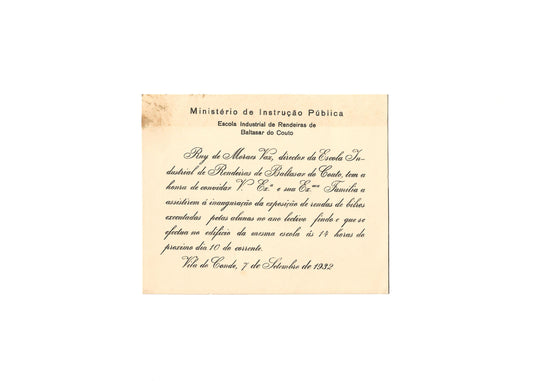 Ministério de Instrução Pública
Escola Industrial de Rendeiras de
Baltasar do Couto
Ruy de Moraes Vaz, director da Escola In-
dustrial de Rendeiras de Baltasar do Couto, tem a
honra de convidar V. Ex.ª e sua Ex.ᵐᵃ Familia a
assistirem á inauguração da exposição de rendas de bilros
executadas pelas alunas no ano lectivo findo e que se
efectua no edificio da mesma escola ás 14 horas do
proximo dia 10 do corrente.
Vila do Conde, 7 de Setembro de 1932